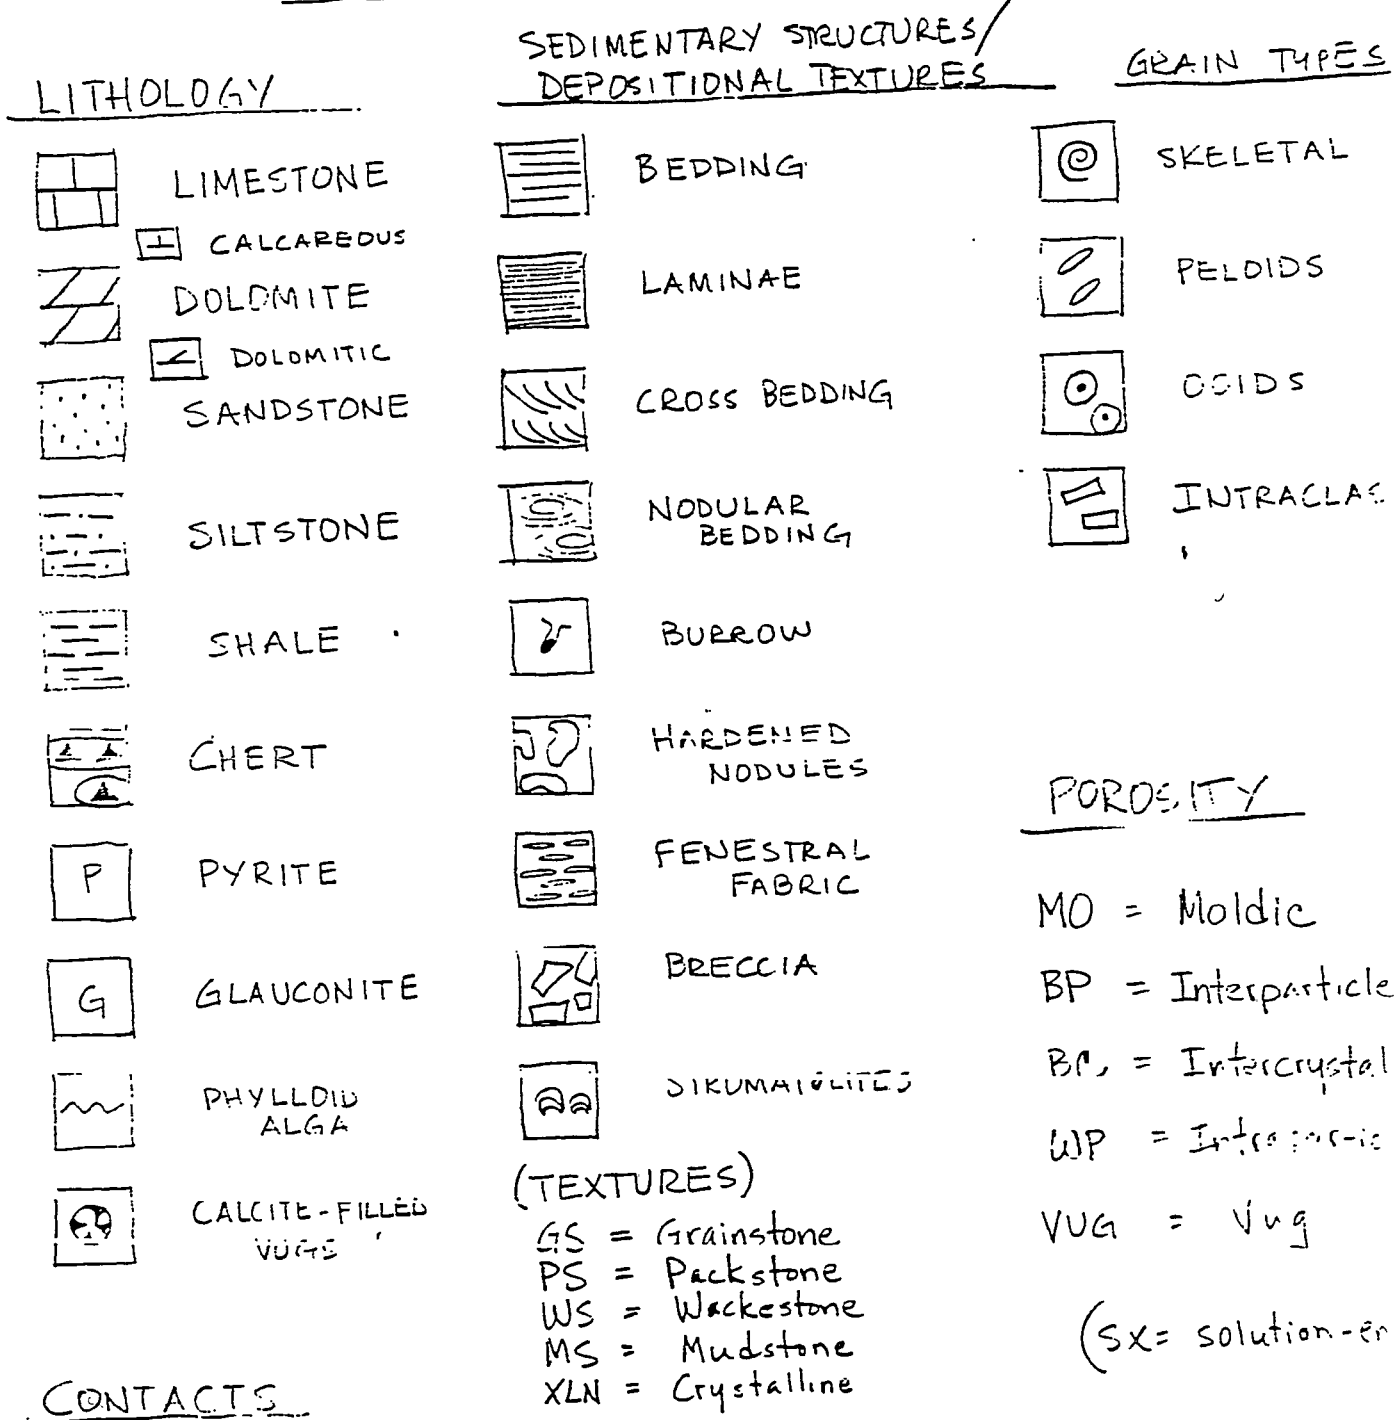 LITHOLOGY
LIMESTONE
CALCAREOUS
DOLOMITE
DOLOMITIC
SANDSTONE
SILTSTONE
SHALE
CHERT
P PYRITE
G GLAUCONITE
PHYLLOID
ALGA
CALCITE-FILLED
VUGS
CONTACTS
SEDIMENTARY STRUCTURES/
DEPOSITIONAL TEXTURES
BEDDING
LAMINAE
CROSS BEDDING
NODULAR
BEDDING
BURROW
HARDENED
NODULES
FENESTRAL
FABRIC
BRECCIA
(TEXTURES)
GS = Grainstone
PS = Packstone
WS = Wackestone
MS = Mudstone
XLN = Crystalline
GRAIN TYPES
SKELETAL
PELOIDS
OOIDS
INTRACLAS
POROSITY
MO = Moldic
BP = Interparticle
= Intercrystal
WP =
VUG = Vug
(SX= solution-en